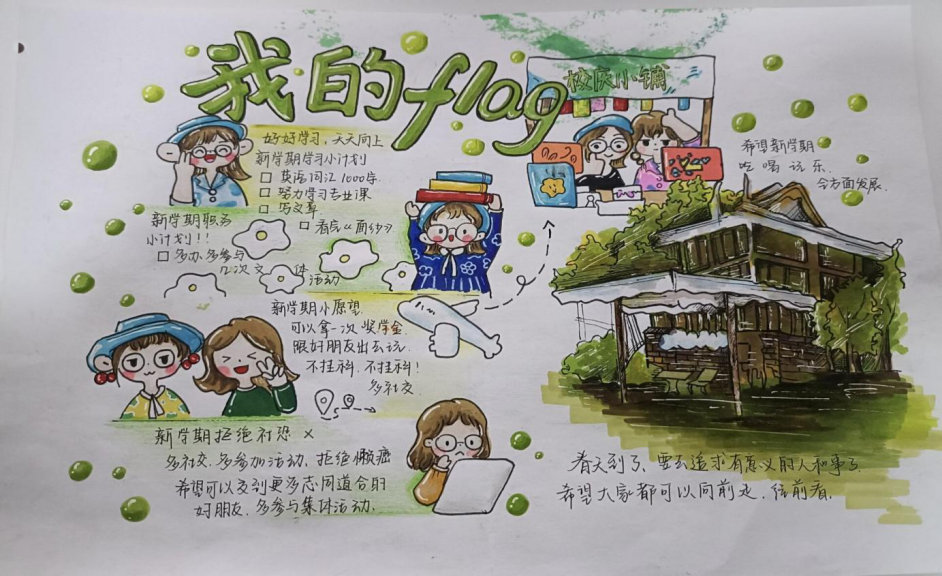 我的flag
校庆小铺
好好学习，天天向上
新学期学习小计划
□ 英语词汇1000+
□ 努力学习专业课
□ 写文章
□ 看完《面纱》
新学期职务
小计划!!
□ 多办、多参与
几次文体
活动
新学期小愿望
可以拿一次奖学金
跟好朋友出去玩
不挂科，不挂科！
多社交
新学期拒绝社恐 ×
多社交，多参加活动，拒绝懒癌
希望可以交到更多志同道合的
好朋友，多参与集体活动.
希望新学期
吃喝玩乐
全方面发展.
春天到了，要去追求有意义的人和事了
希望大家都可以向前走，往前看.